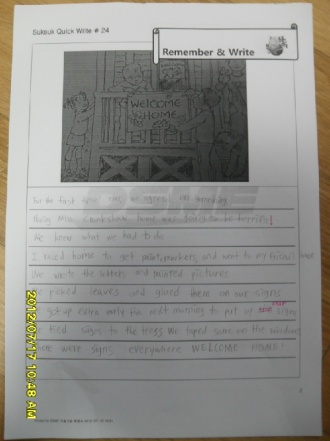 Subuk Quick Write # 24
Remember & Write
WELCOME
HOME
For the first time we agreed on something
Having Miss home was to be terrific!
We knew what we had to do.
I raced home to get paint, markers, and went to my friend's house
We wrote the letters and painted pictures
We picked leaves and glued them on our signs
We got up extra early the next morning to put up signs
We tied signs to the trees We taped some on the windows
There were signs everywhere WELCOME HOME!
2
2012/07/17 10:48 AM